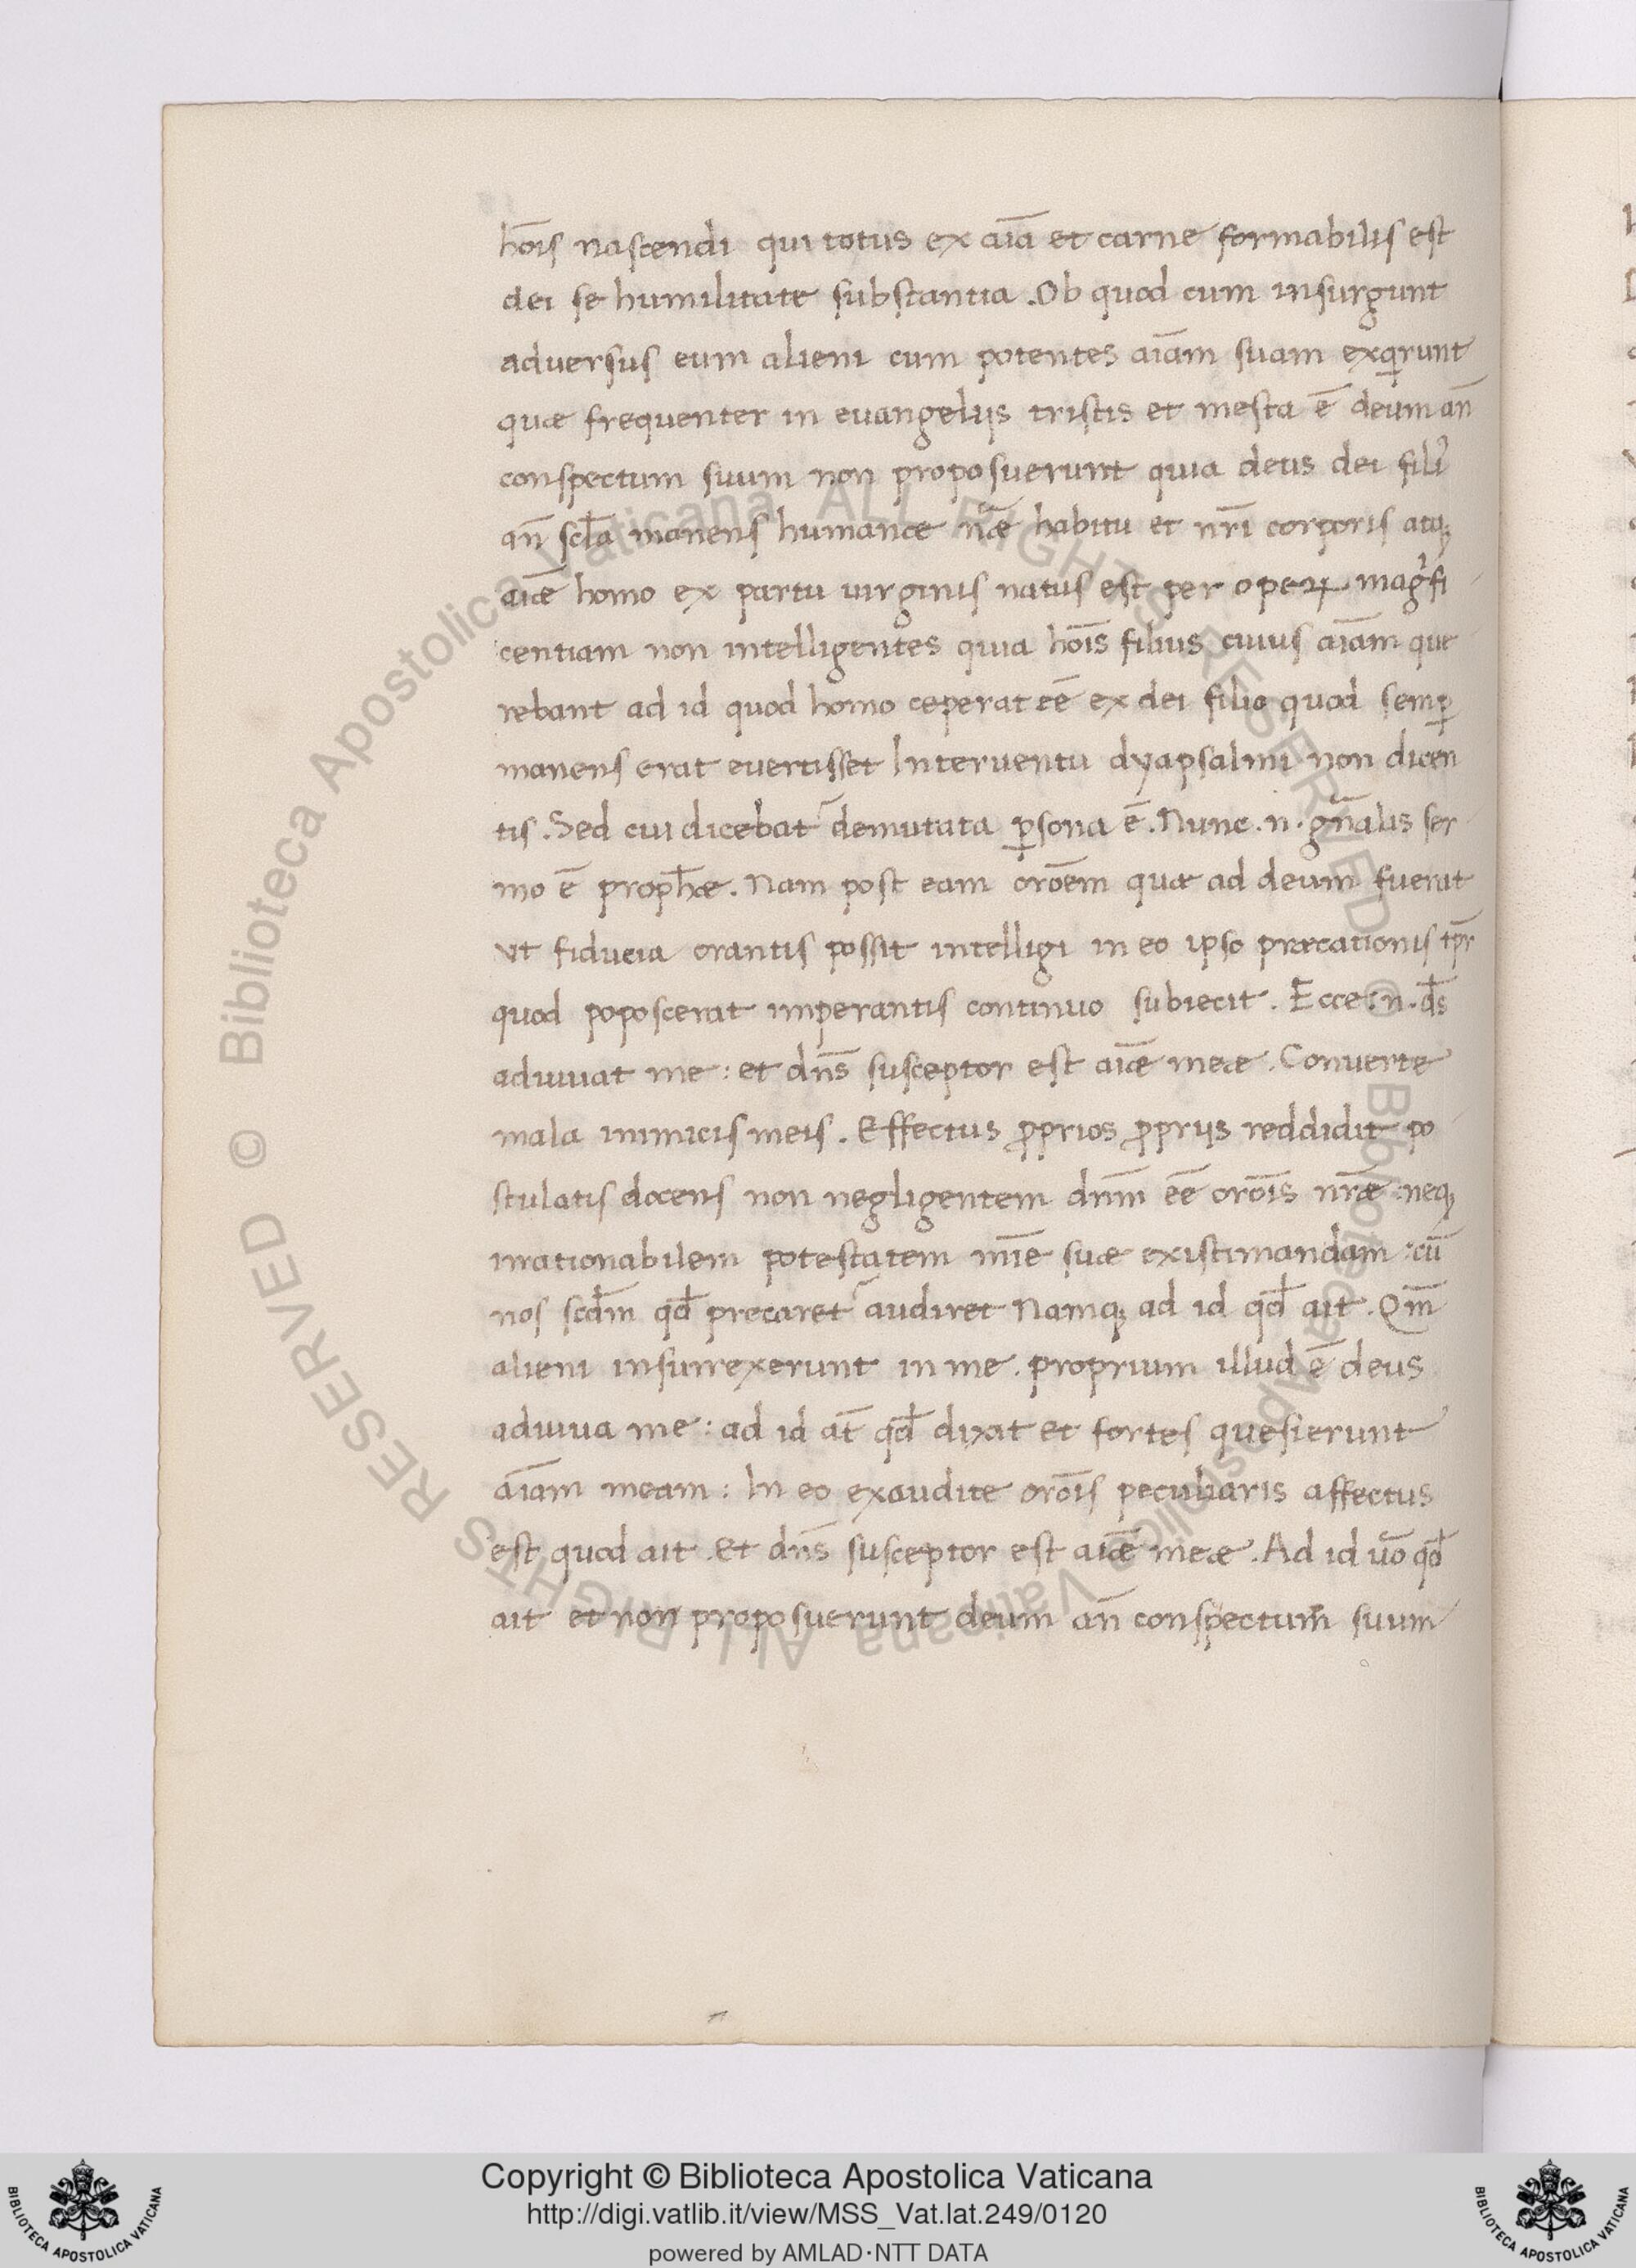 ho͞is nascendi qui totus ex aı͞a et carne formabilis est
dei se humilitate substantia . Ob quod cum insurgunt
adversus eum alieni cum potentes aı͞am suam exq̣runt
quae frequenter in euangelijs tristis et mesta ē deum an̄
conspectum suum non proposuerunt quia deus dei fili᷒
an̄ scl̄a manens humanae nāe habitu et nr̄i corporis atq;
aı͞ae homo ex partu uirginis natus est per operꝝ magͥfi
centiam non intelligentes quia ho͞is filius cuius aı͞am que
rebant ad id quod homo ceperat eē ex dei filio quod semꝑ
manens erat euertisset Interuentu dyapsalmi non dicen
tis . Sed cui dicebat᷑ demutata ꝑsona ē . Nunc . n . gn̄alis ser
mo ē proph̄ae . Nam post eam oro͞em quae ad deum fuerat
vt fiducia orantis possit intelligi in eo ipso praecationis tp̄r
quod poposcerat imperantis continuo subiecit . Ecce . n . d̄s
adiuuat me : et dn̄s susceptor est aı͞ae meae . Conuerte
mala inimicis meis . Effectus ꝓprios ꝓprijs reddidit po
stulatis docens non negligentem dn̄m eē oro͞is nr̄ae : neq;
irrationabilem potestatem mı͞e suae existimandam : cū
nos scd̄m qd̄ precaret᷑ audiret Namq; ad id qd̄ ait . Qm̄
alieni insurrexerunt in me . proprium illud ē deus
adiuua me : ad id at̄ qd̄ dixat et fortes quesierunt
aı͞am meam : In eo exaudite oro͞is peculiaris affectus
est quod ait . Et dn̄s susceptor est aı͞ae meae . Ad id uo͞ qd̄
ait et non proposuerunt deum an̄ conspectum suum
Copyright © Biblioteca Apostolica Vaticana
http://digi.vatlib.it/view/MSS_Vat.lat.249/0120
powered by AMLAD·NTT DATA
BIBLIOTECA APOSTOLICA VATICANA
BIBLIOTECA APOSTOLICA VATICANA
© Biblioteca Apostolica Vaticana ALL RIGHTS RESERVED © Biblioteca Apostolica Vaticana ALL RIGHTS RESERVED